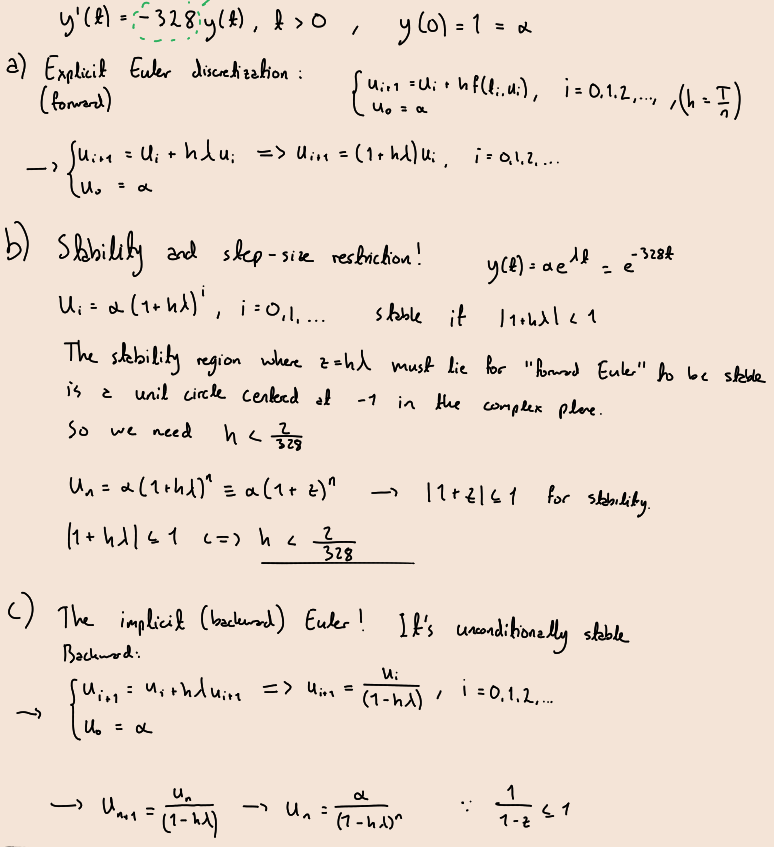 y'(t) = -328 y(t), t > 0 , y(0) = 1 = α
a) Explicit Euler discretization : { u_{i+1} = u_i + h f(t_i, u_i), i = 0,1,2,..., , (h = T/n)
(forward) u_0 = α
→ { u_{i+1} = u_i + hλu_i => u_{i+1} = (1+hλ)u_i, i = 0,1,2,...
u_0 = α
b) Stability and step-size restriction! y(t) = αe^{λt} = e^{-328t}
u_i = α(1+hλ)^i, i = 0,1,... stable if |1+hλ| < 1
The stability region where z=hλ must lie for "forward Euler" to be stable
is a unit circle centered at -1 in the complex plane.
So we need h < 2/328
u_n = α(1+hλ)^n ≡ α(1+z)^n → |1+z| ≤ 1 for stability.
|1+hλ| ≤ 1 <=> h < 2/328
c) The implicit (backward) Euler! It's unconditionally stable
Backward:
→ { u_{i+1} = u_i + hλu_{i+1} => u_{i+1} = u_i/(1-hλ), i = 0,1,2,...
u_0 = α
→ u_{n+1} = u_n/(1-hλ) → u_n = α/(1-hλ)^n ∵ 1/(1-z) ≤ 1